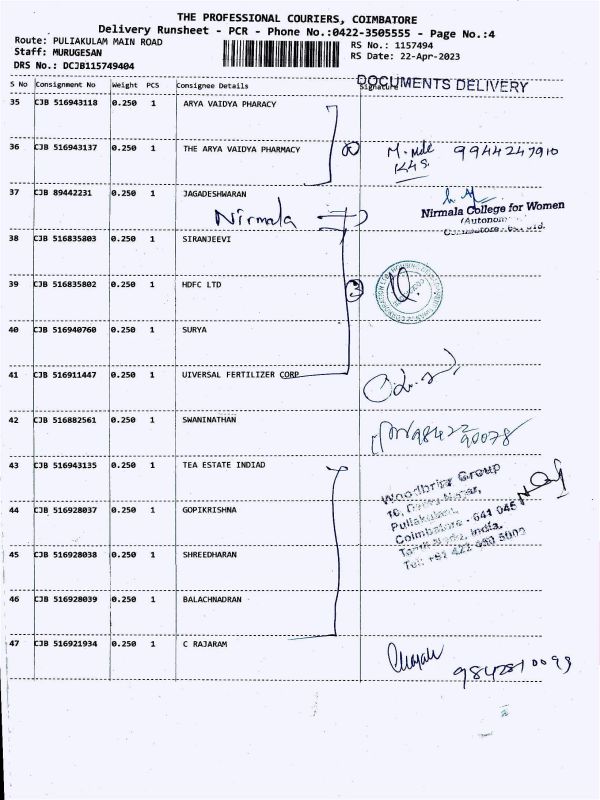 THE PROFESSIONAL COURIERS, COIMBATORE
Delivery Runsheet - PCR - Phone No.:0422-3505555 - Page No.:4
Route: PULIAKULAM MAIN ROAD
RS No.: 1157494
Staff: MURUGESAN
RS Date: 22-Apr-2023
DRS No.: DCJB115749404
S No Consignment No Weight PCS Consignee Details Signature
DOCUMENTS DELIVERY
35 CJB 516943118 0.250 1 ARYA VAIDYA PHARACY
36 CJB 516943137 0.250 1 THE ARYA VAIDYA PHARMACY
9944247910
37 CJB 89442231 0.250 1 JAGADESHWARAN
Nirmala
Nirmala College for Women
(Autonom
38 CJB 516835803 0.250 1 SIRANJEEVI
39 CJB 516835802 0.250 1 HDFC LTD
3
40 CJB 516940760 0.250 1 SURYA
41 CJB 516911447 0.250 1 UIVERSAL FERTILIZER CORP
42 CJB 516882561 0.250 1 SWANINATHAN
98422
90078
43 CJB 516943135 0.250 1 TEA ESTATE INDIAD
Woodbriar Group
Pullakulam,
Coimbatore - 641 045
Tamil Nadu, India.
44 CJB 516928037 0.250 1 GOPIKRISHNA
45 CJB 516928038 0.250 1 SHREEDHARAN
46 CJB 516928039 0.250 1 BALACHNADRAN
47 CJB 516921934 0.250 1 C RAJARAM